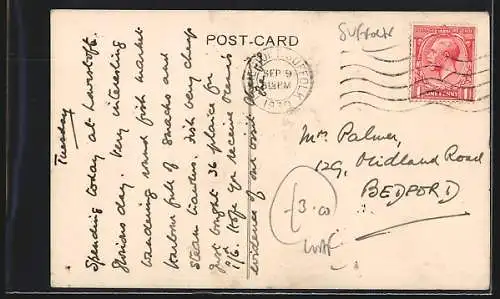 POST-CARD
Suffolk
SUFFOLK
SEP 9
1930
ONE PENNY
Tuesday
Spending today at Lowestoft.
Glorious day. Very interesting
wandering round fish market
Harbour full of smacks and
steam trawlers. Fish very cheap
just bought 36 plaice for
1/6. Hope you receive
evidence of our visit
Mrs Palmer,
129, Midland Road
BEDFORD
£3.00